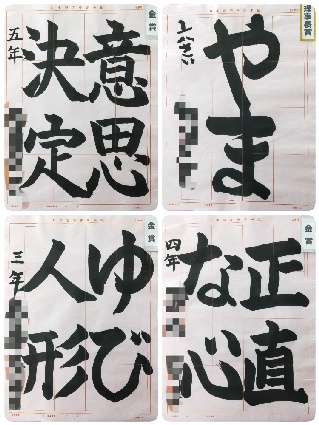 金賞
意思
決定
五年
理事長賞
やま
金賞
ゆび
人形
三年
金賞
正直
な心
四年